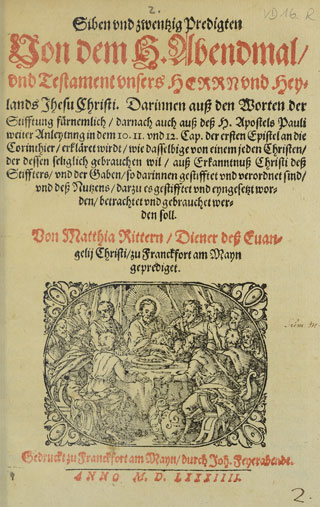 2.
VD 16. R
Siben vnd zwentzig Predigten
Von dem H. Abendmal/
vnd Testament vnsers HERRN vnd Hey-
lands Jhesu Christi. Darinnen auß den Worten der
Stifftung fürnemlich/ darnach auch auß deß H. Apostels Pauli
weiter Anleytung in dem 10. 11. vnd 12. Cap. der ersten Epistel an die
Corinthier/ erkläret wirdt/ wie dasselbige von einem jeden Christen/
der dessen seliglich gebrauchen wil/ auß Erkanntnuß Christi deß
Stiffters/ vnd der Gaben/ so darinnen gestifftet vnd verordnet sind/
vnd deß Nutzens/ darzu es gestifftet vnd eyngesetzt wor-
den/ betrachtet vnd gebrauchet wer-
den soll.
Von Matthia Rittern/ Diener deß Euan-
gelij Christi/ zu Franckfort am Mayn
geprediget.
Gedruckt zu Franckfort am Mayn/ durch Joh. Feyerabendt.
ANNO M. D. LXXXIIII.
2.